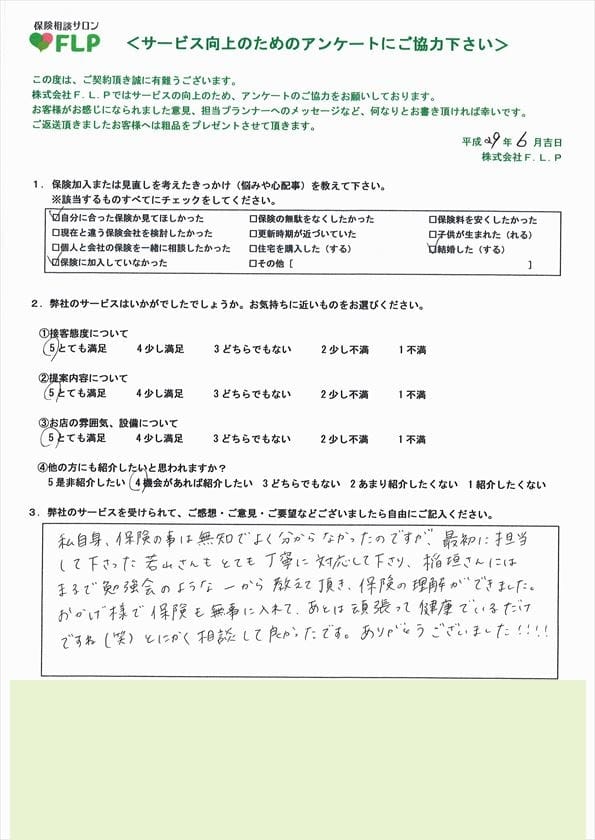 保険相談サロン
FLP
＜サービス向上のためのアンケートにご協力下さい＞
この度は、ご契約頂き誠に有難うございます。
株式会社Ｆ.Ｌ.Ｐではサービスの向上のため、アンケートのご協力をお願いしております。
お客様がお感じになられました意見、担当プランナーへのメッセージなど、何なりとお書き頂ければ幸いです。
ご返送頂きましたお客様へは粗品をプレゼントさせて頂きます。
平成 29 年 6 月吉日
株式会社Ｆ.Ｌ.Ｐ
１．保険加入または見直しを考えたきっかけ（悩みや心配事）を教えて下さい。
※該当するものすべてにチェックをしてください。
☑自分に合った保険か見てほしかった □保険の無駄をなくしたかった □保険料を安くしたかった
□現在と違う保険会社を検討したかった □更新時期が近づいていた □子供が生まれた（れる）
□個人と会社の保険を一緒に相談したかった □住宅を購入した（する） ☑結婚した（する）
☑保険に加入していなかった □その他［ ］
２．弊社のサービスはいかがでしたでしょうか。お気持ちに近いものをお選びください。
①接客態度について
５とても満足 ４少し満足 ３どちらでもない ２少し不満 １不満
②提案内容について
５とても満足 ４少し満足 ３どちらでもない ２少し不満 １不満
③お店の雰囲気、設備について
５とても満足 ４少し満足 ３どちらでもない ２少し不満 １不満
④他の方にも紹介したいと思われますか？
５是非紹介したい ４機会があれば紹介したい ３どちらでもない ２あまり紹介したくない １紹介したくない
３．弊社のサービスを受けられて、ご感想・ご意見・ご要望などございましたら自由にご記入ください。
私自身、保険の事は無知でよく分からなかったのですが、最初に担当
して下さった若山さんもとても丁寧に対応して下さり、稲垣さんには
まるで勉強会のような一から教えて頂き、保険の理解ができました。
おかげ様で保険も無事に入れて、あとは頑張って健康でいるだけ
ですね（笑）とにかく相談して良かったです。ありがとうございました!!!!